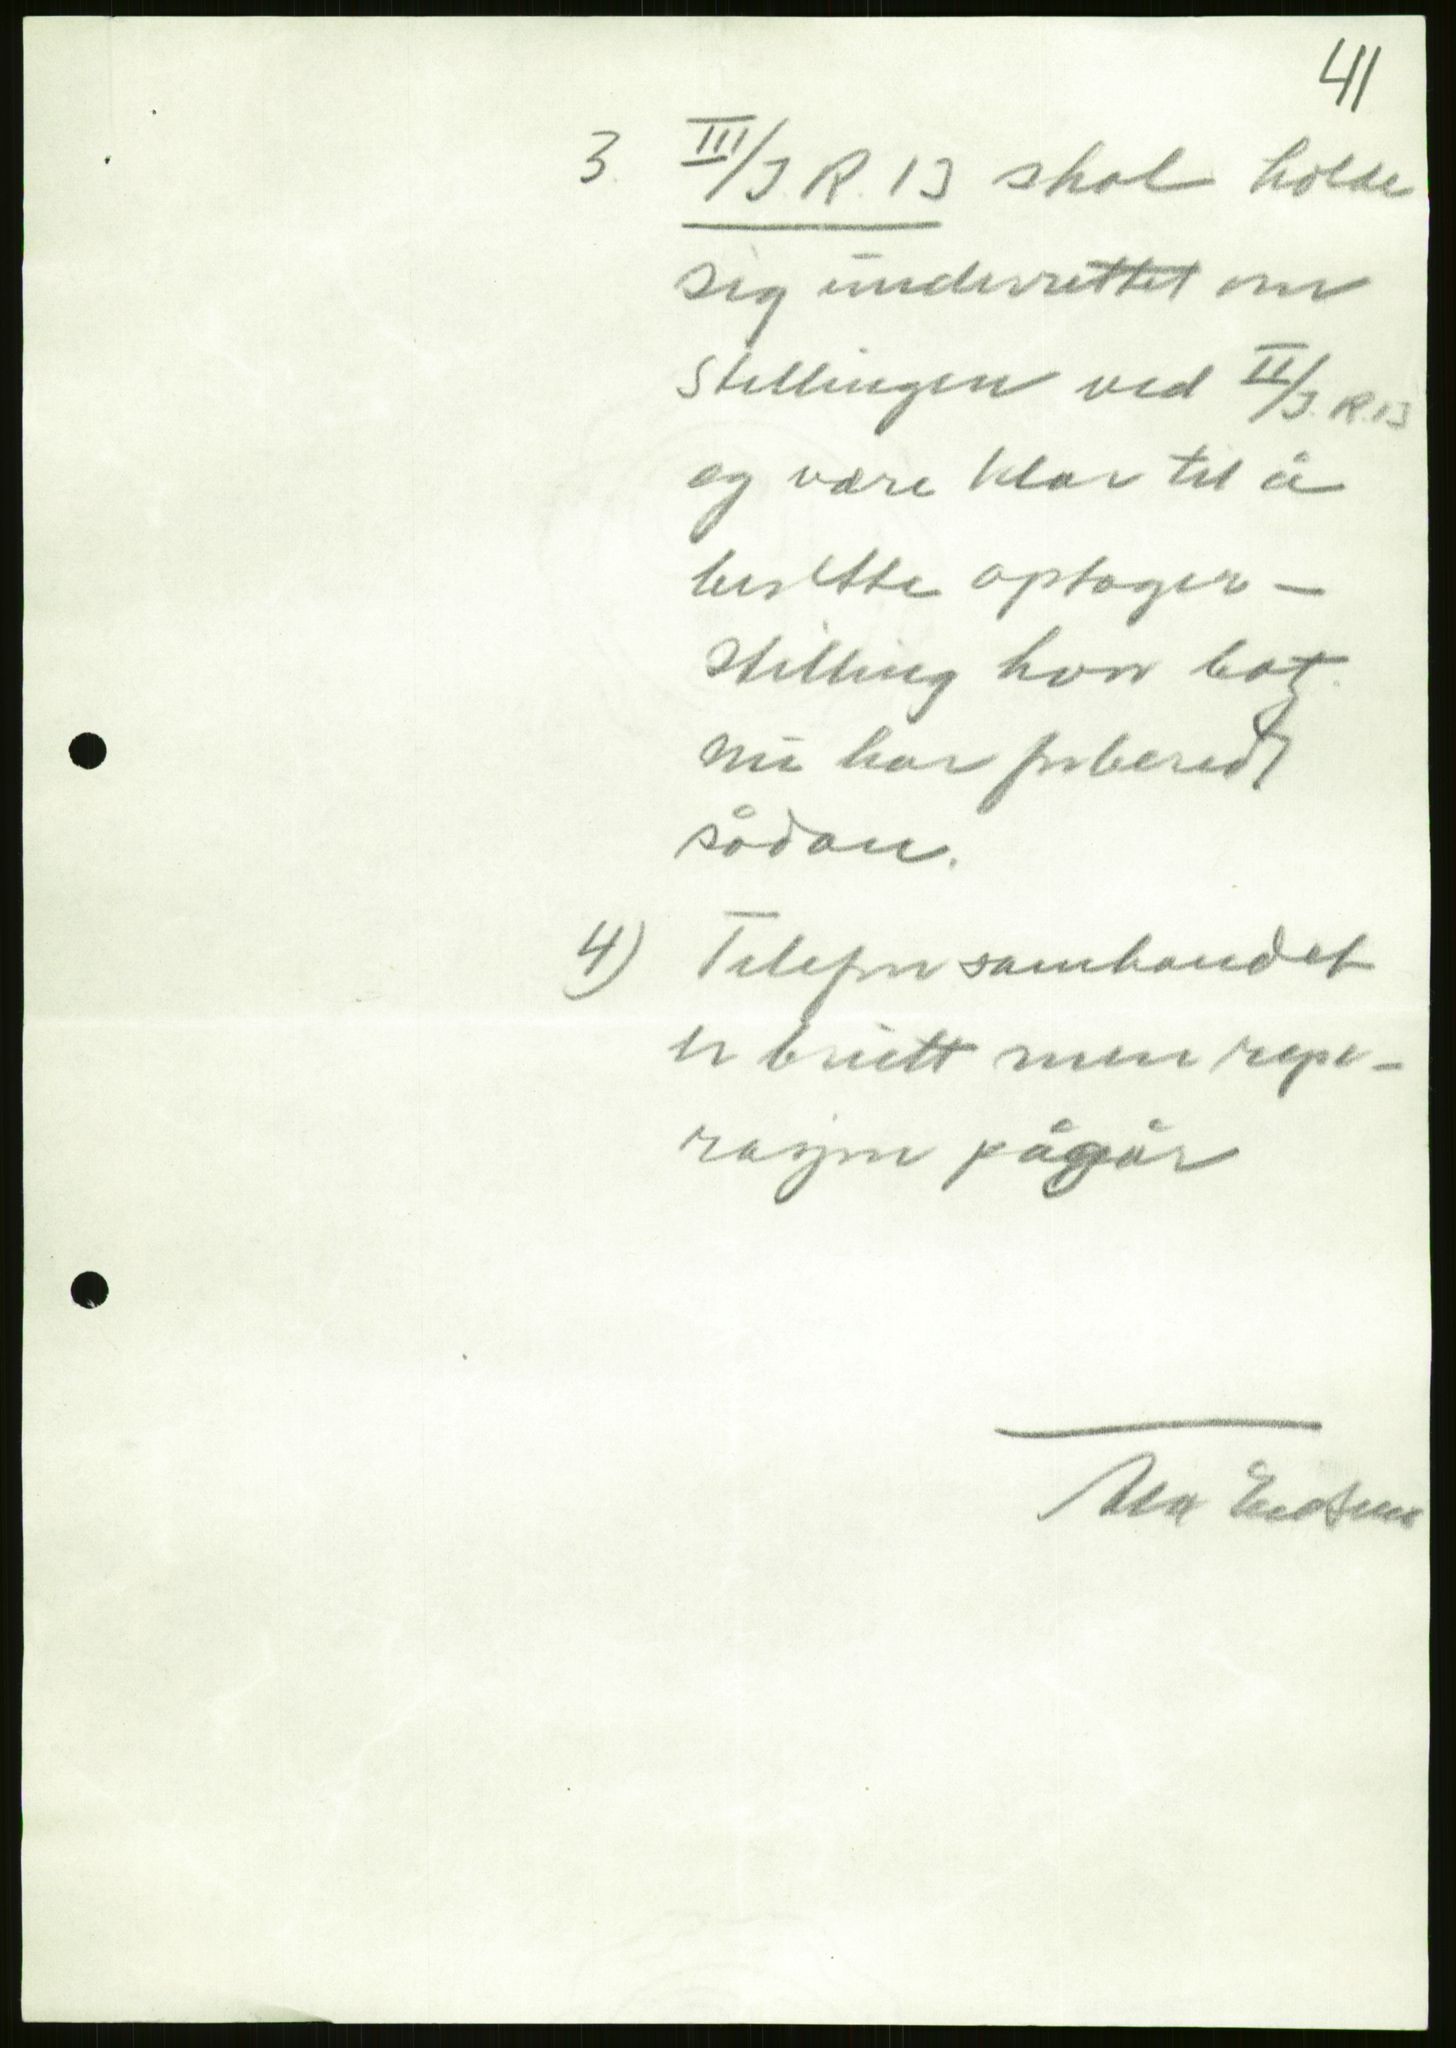 41
3. III/J.R.13 skal holde
sig underrettet om
stillingen ved II/J.R.13
og være klar til å
besette optager-
stilling hvor bat.
nu har forberedt
sådan.
4) Telefonsambandet
er brutt men repe-
rasjon pågår